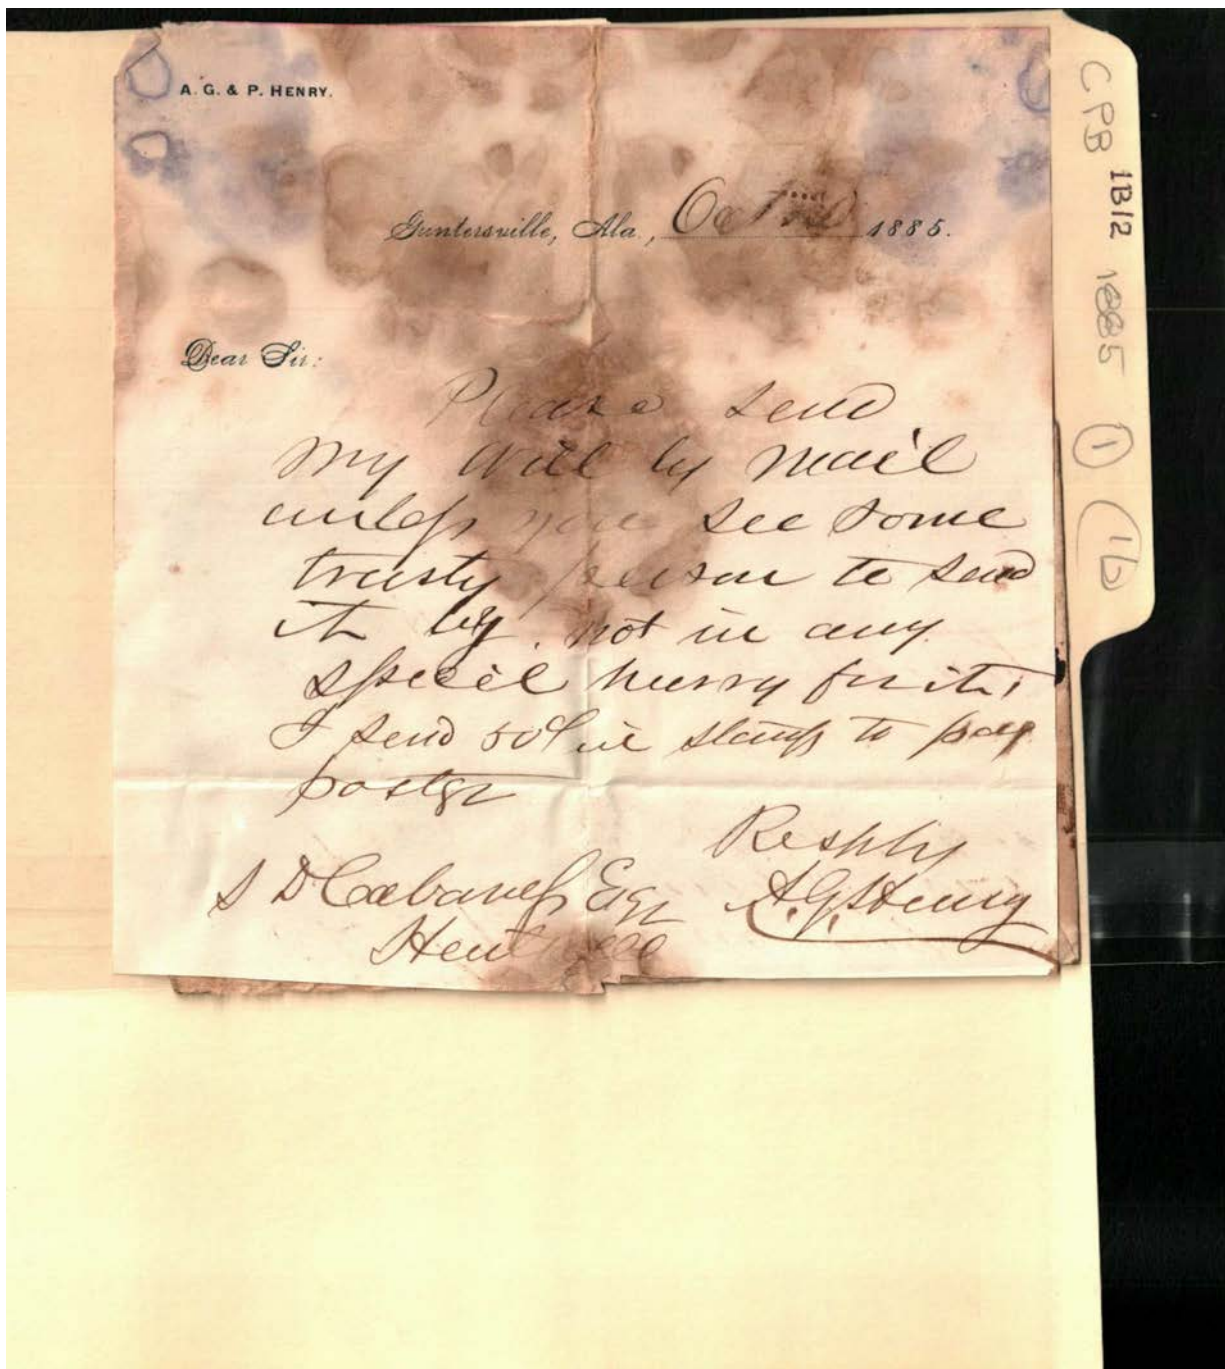 A. G. & P. HENRY.
Guntersville, Ala., Oct 1885.
Dear Sir:
Please send
my will by mail
unless you see some
trusty person to send
it by. not in any
speciel hurry for it,
I send 50¢ in stamps to pay
postge
Resptly
S D Cabaness Esqr A. G. Henry
CPB 1B12 1885 1 16